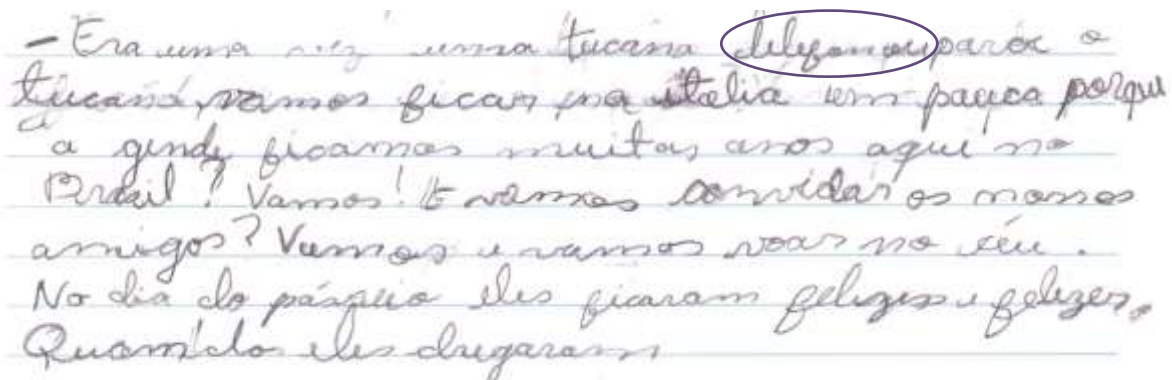 - Era uma vez uma tucana telefonou para o
tucano, vamos ficar na italia um pouco porque
a gende ficamos muitos anos aqui no
Brasil? Vamos! E vamos convidar os nossos
amigos? Vamos e vamos voar no céu.
No dia do páseio eles ficaram felizes e felizes.
Quamdos eles chegaram